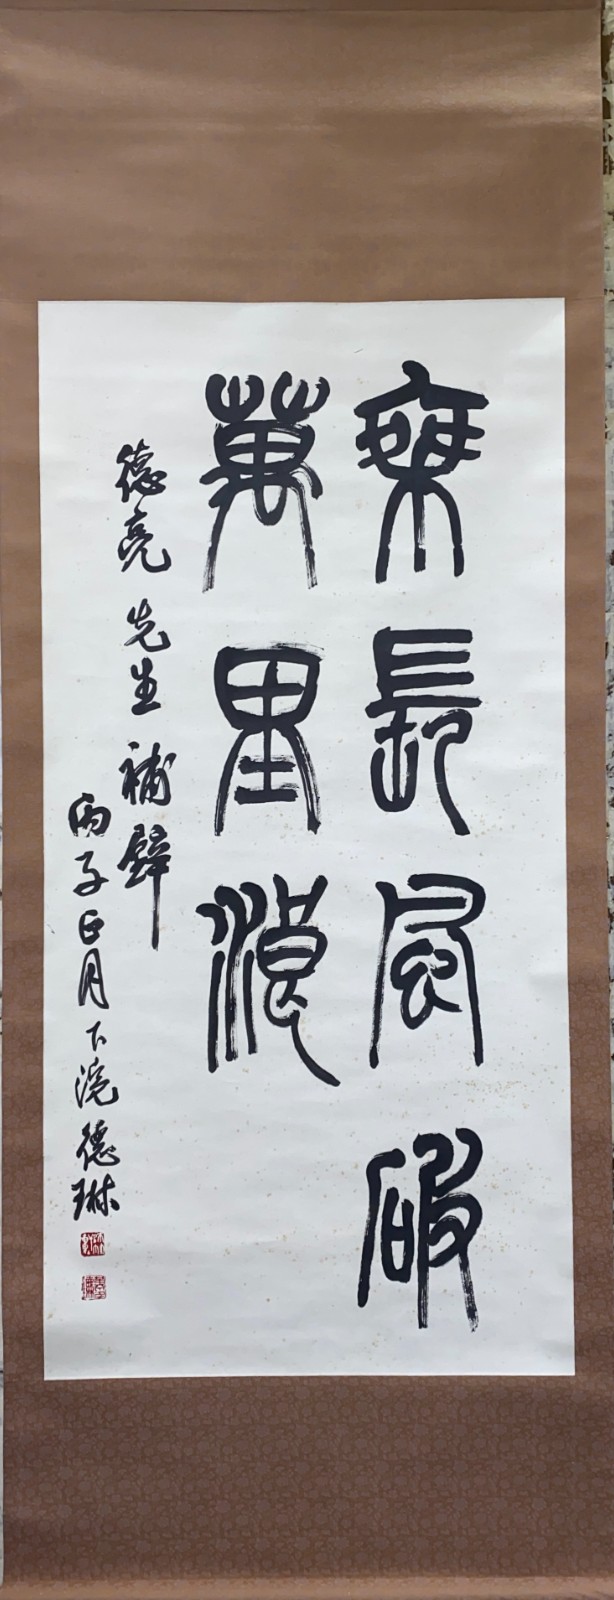 乘長風破
萬里浪
德亮先生補壁
丙子正月下浣德琳